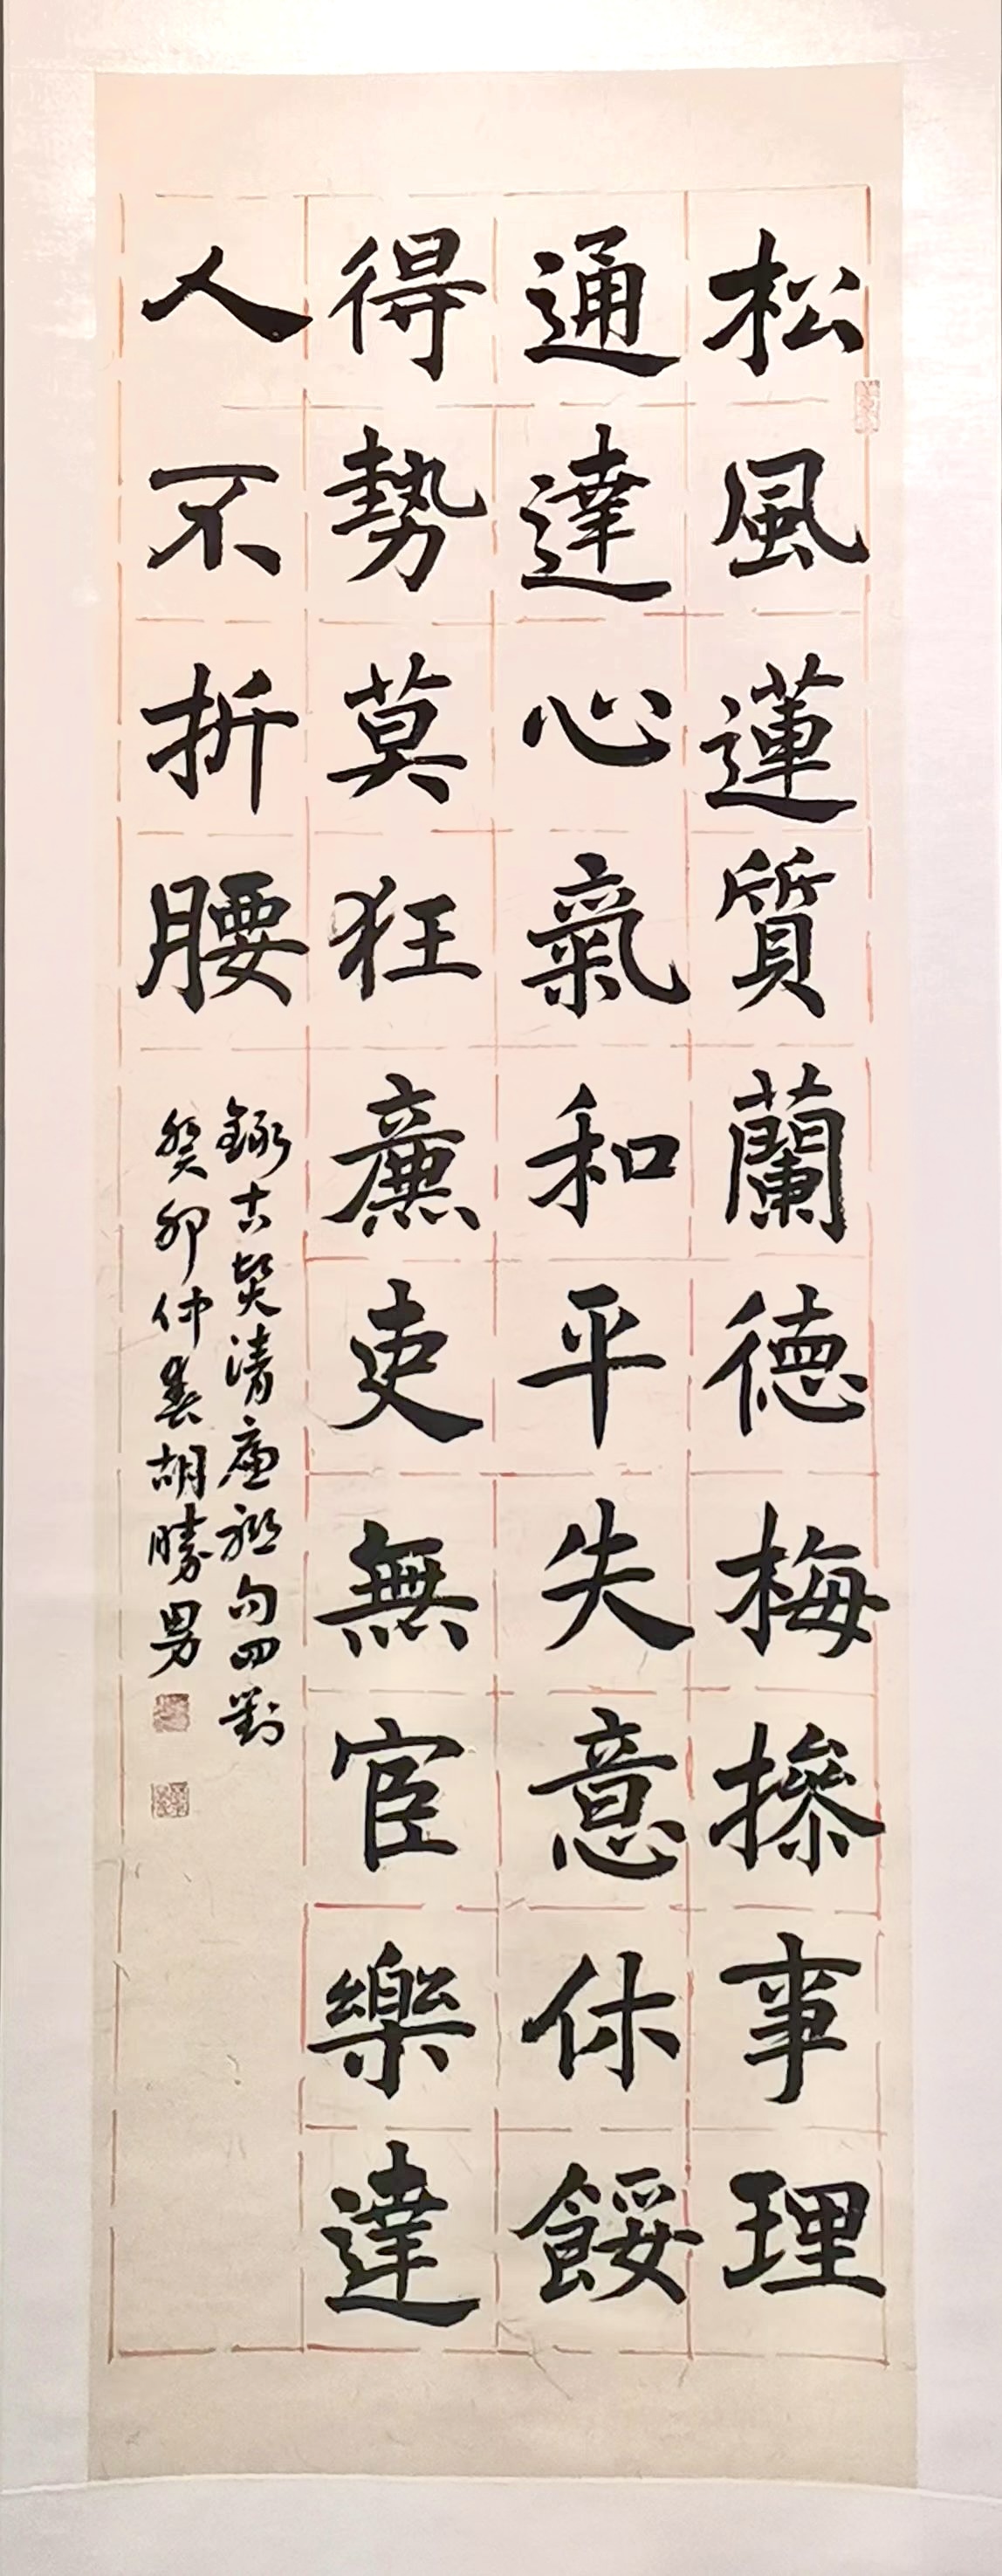 松風蓮質蘭德梅操事理
通達心氣和平失意休餒
得勢莫狂廉吏無宦樂達
人不折腰
錄古賢清廉聯句四對
癸卯仲春胡勝男